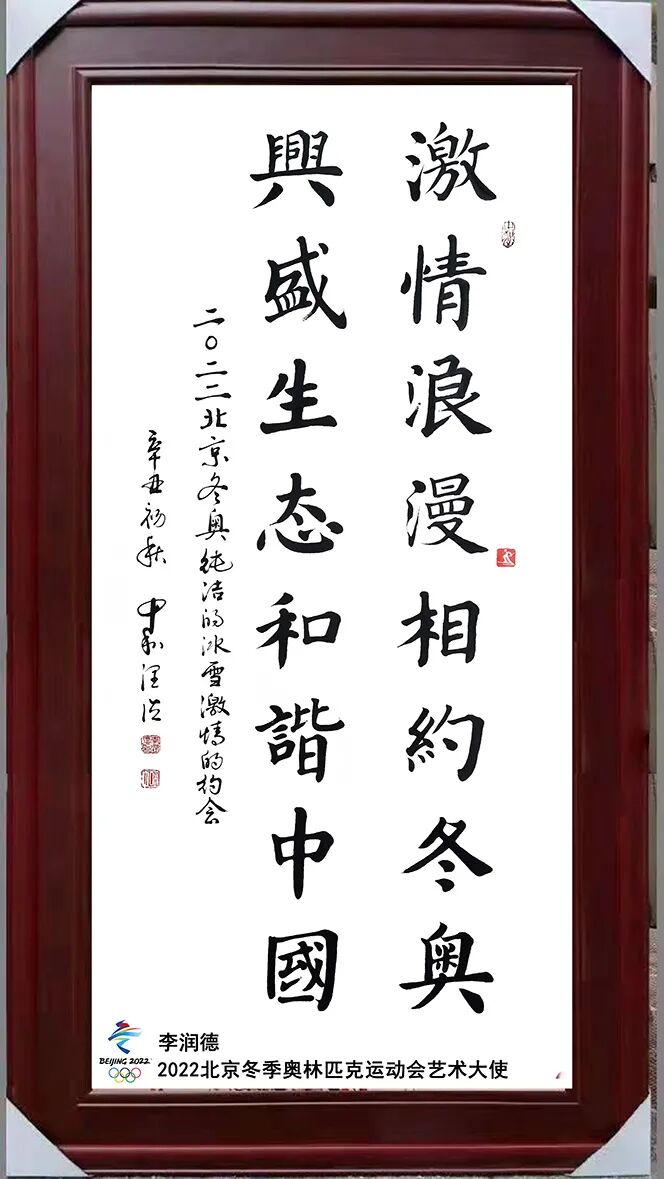 激情浪漫相約冬奥
興盛生态和諧中國
二〇二二北京冬奥纯洁的冰雪激情的约会
辛丑初秋 润德
李润德
BEIJING 2022
2022北京冬季奥林匹克运动会艺术大使